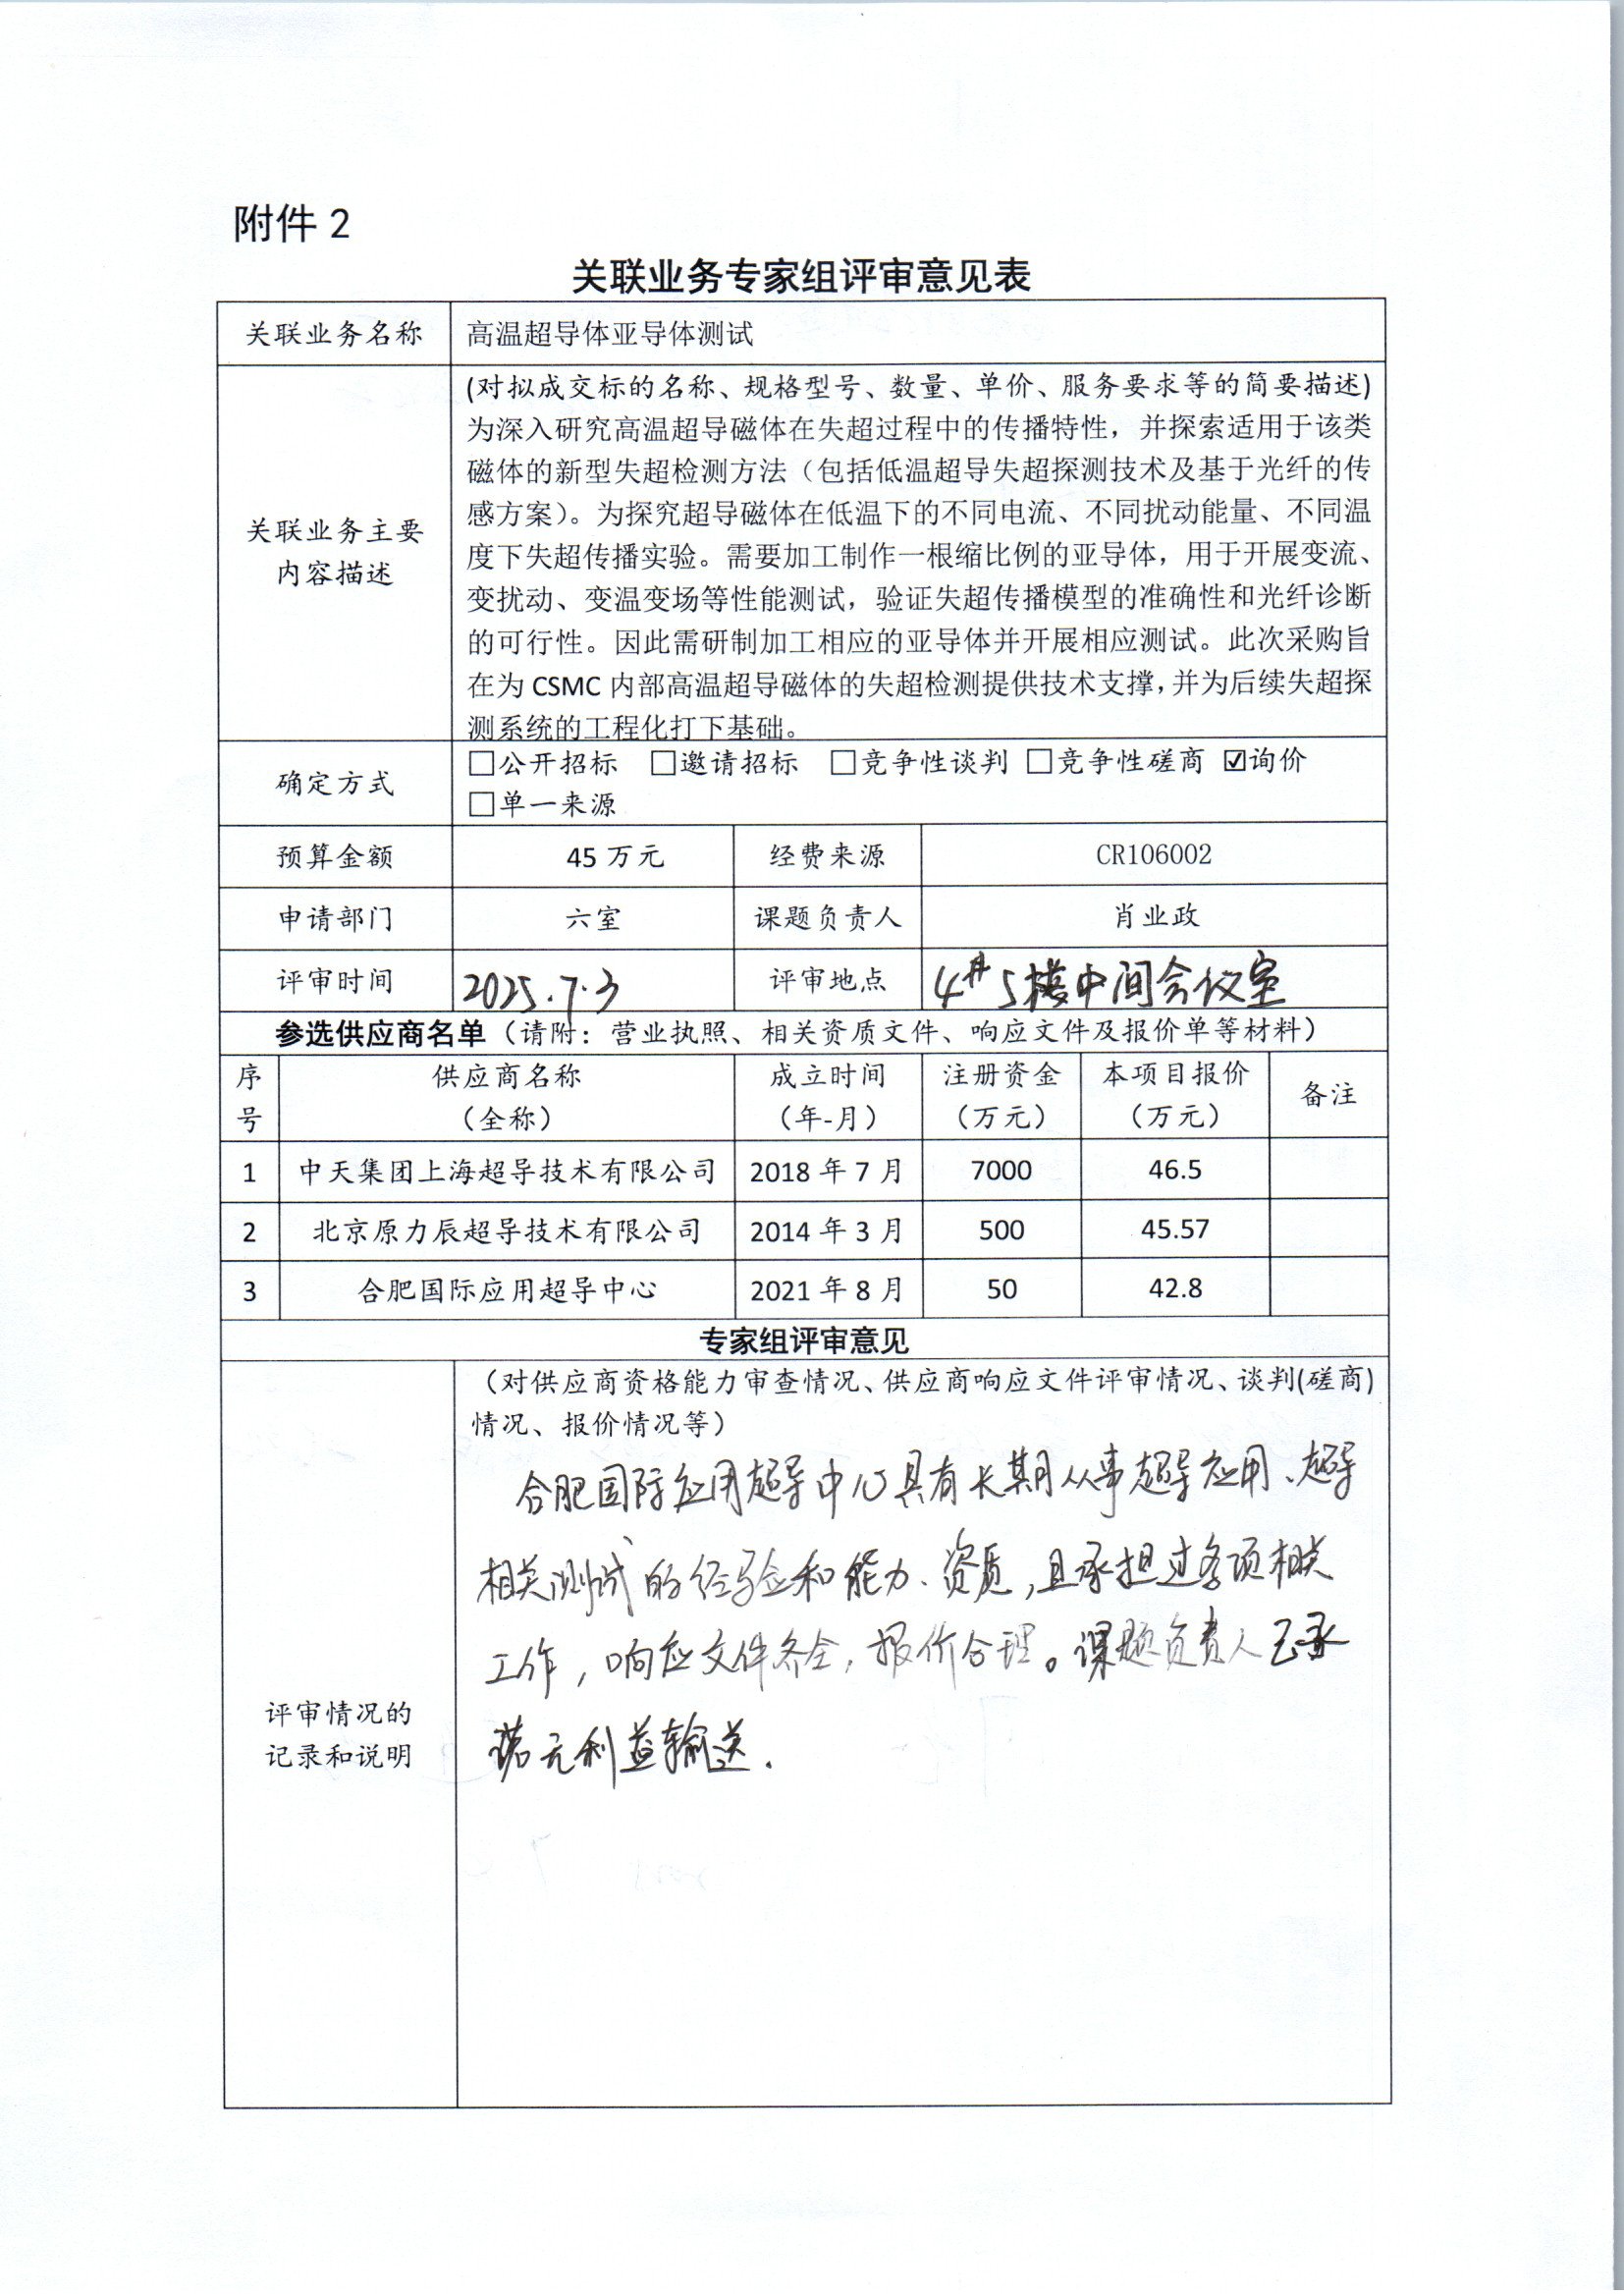 附件 2
关联业务专家组评审意见表
关联业务名称 高温超导体亚导体测试
关联业务主要内容描述
(对拟成交标的名称、规格型号、数量、单价、服务要求等的简要描述)
为深入研究高温超导磁体在失超过程中的传播特性，并探索适用于该类
磁体的新型失超检测方法（包括低温超导失超探测技术及基于光纤的传
感方案）。为探究超导磁体在低温下的不同电流、不同扰动能量、不同温
度下失超传播实验。需要加工制作一根缩比例的亚导体，用于开展变流、
变扰动、变温变场等性能测试，验证失超传播模型的准确性和光纤诊断
的可行性。因此需研制加工相应的亚导体并开展相应测试。此次采购旨
在为 CSMC 内部高温超导磁体的失超检测提供技术支撑，并为后续失超探
测系统的工程化打下基础。
确定方式 ☐公开招标 ☐邀请招标 ☐竞争性谈判 ☐竞争性磋商 ☑询价
☐单一来源
预算金额 45 万元 经费来源 CR106002
申请部门 六室 课题负责人 肖业政
评审时间 2025.7.3 评审地点 4# 5楼中间会议室
参选供应商名单（请附：营业执照、相关资质文件、响应文件及报价单等材料）
序号 供应商名称（全称） 成立时间（年-月） 注册资金（万元） 本项目报价（万元） 备注
1 中天集团上海超导技术有限公司 2018 年 7 月 7000 46.5
2 北京原力辰超导技术有限公司 2014 年 3 月 500 45.57
3 合肥国际应用超导中心 2021 年 8 月 50 42.8
专家组评审意见
评审情况的记录和说明
（对供应商资格能力审查情况、供应商响应文件评审情况、谈判(磋商)
情况、报价情况等）
合肥国际应用超导中心具有长期从事超导应用、超导
相关测试的经验和能力、资质，且承担过多项相关
工作，响应文件齐全，报价合理。课题负责人已承
诺无利益输送.